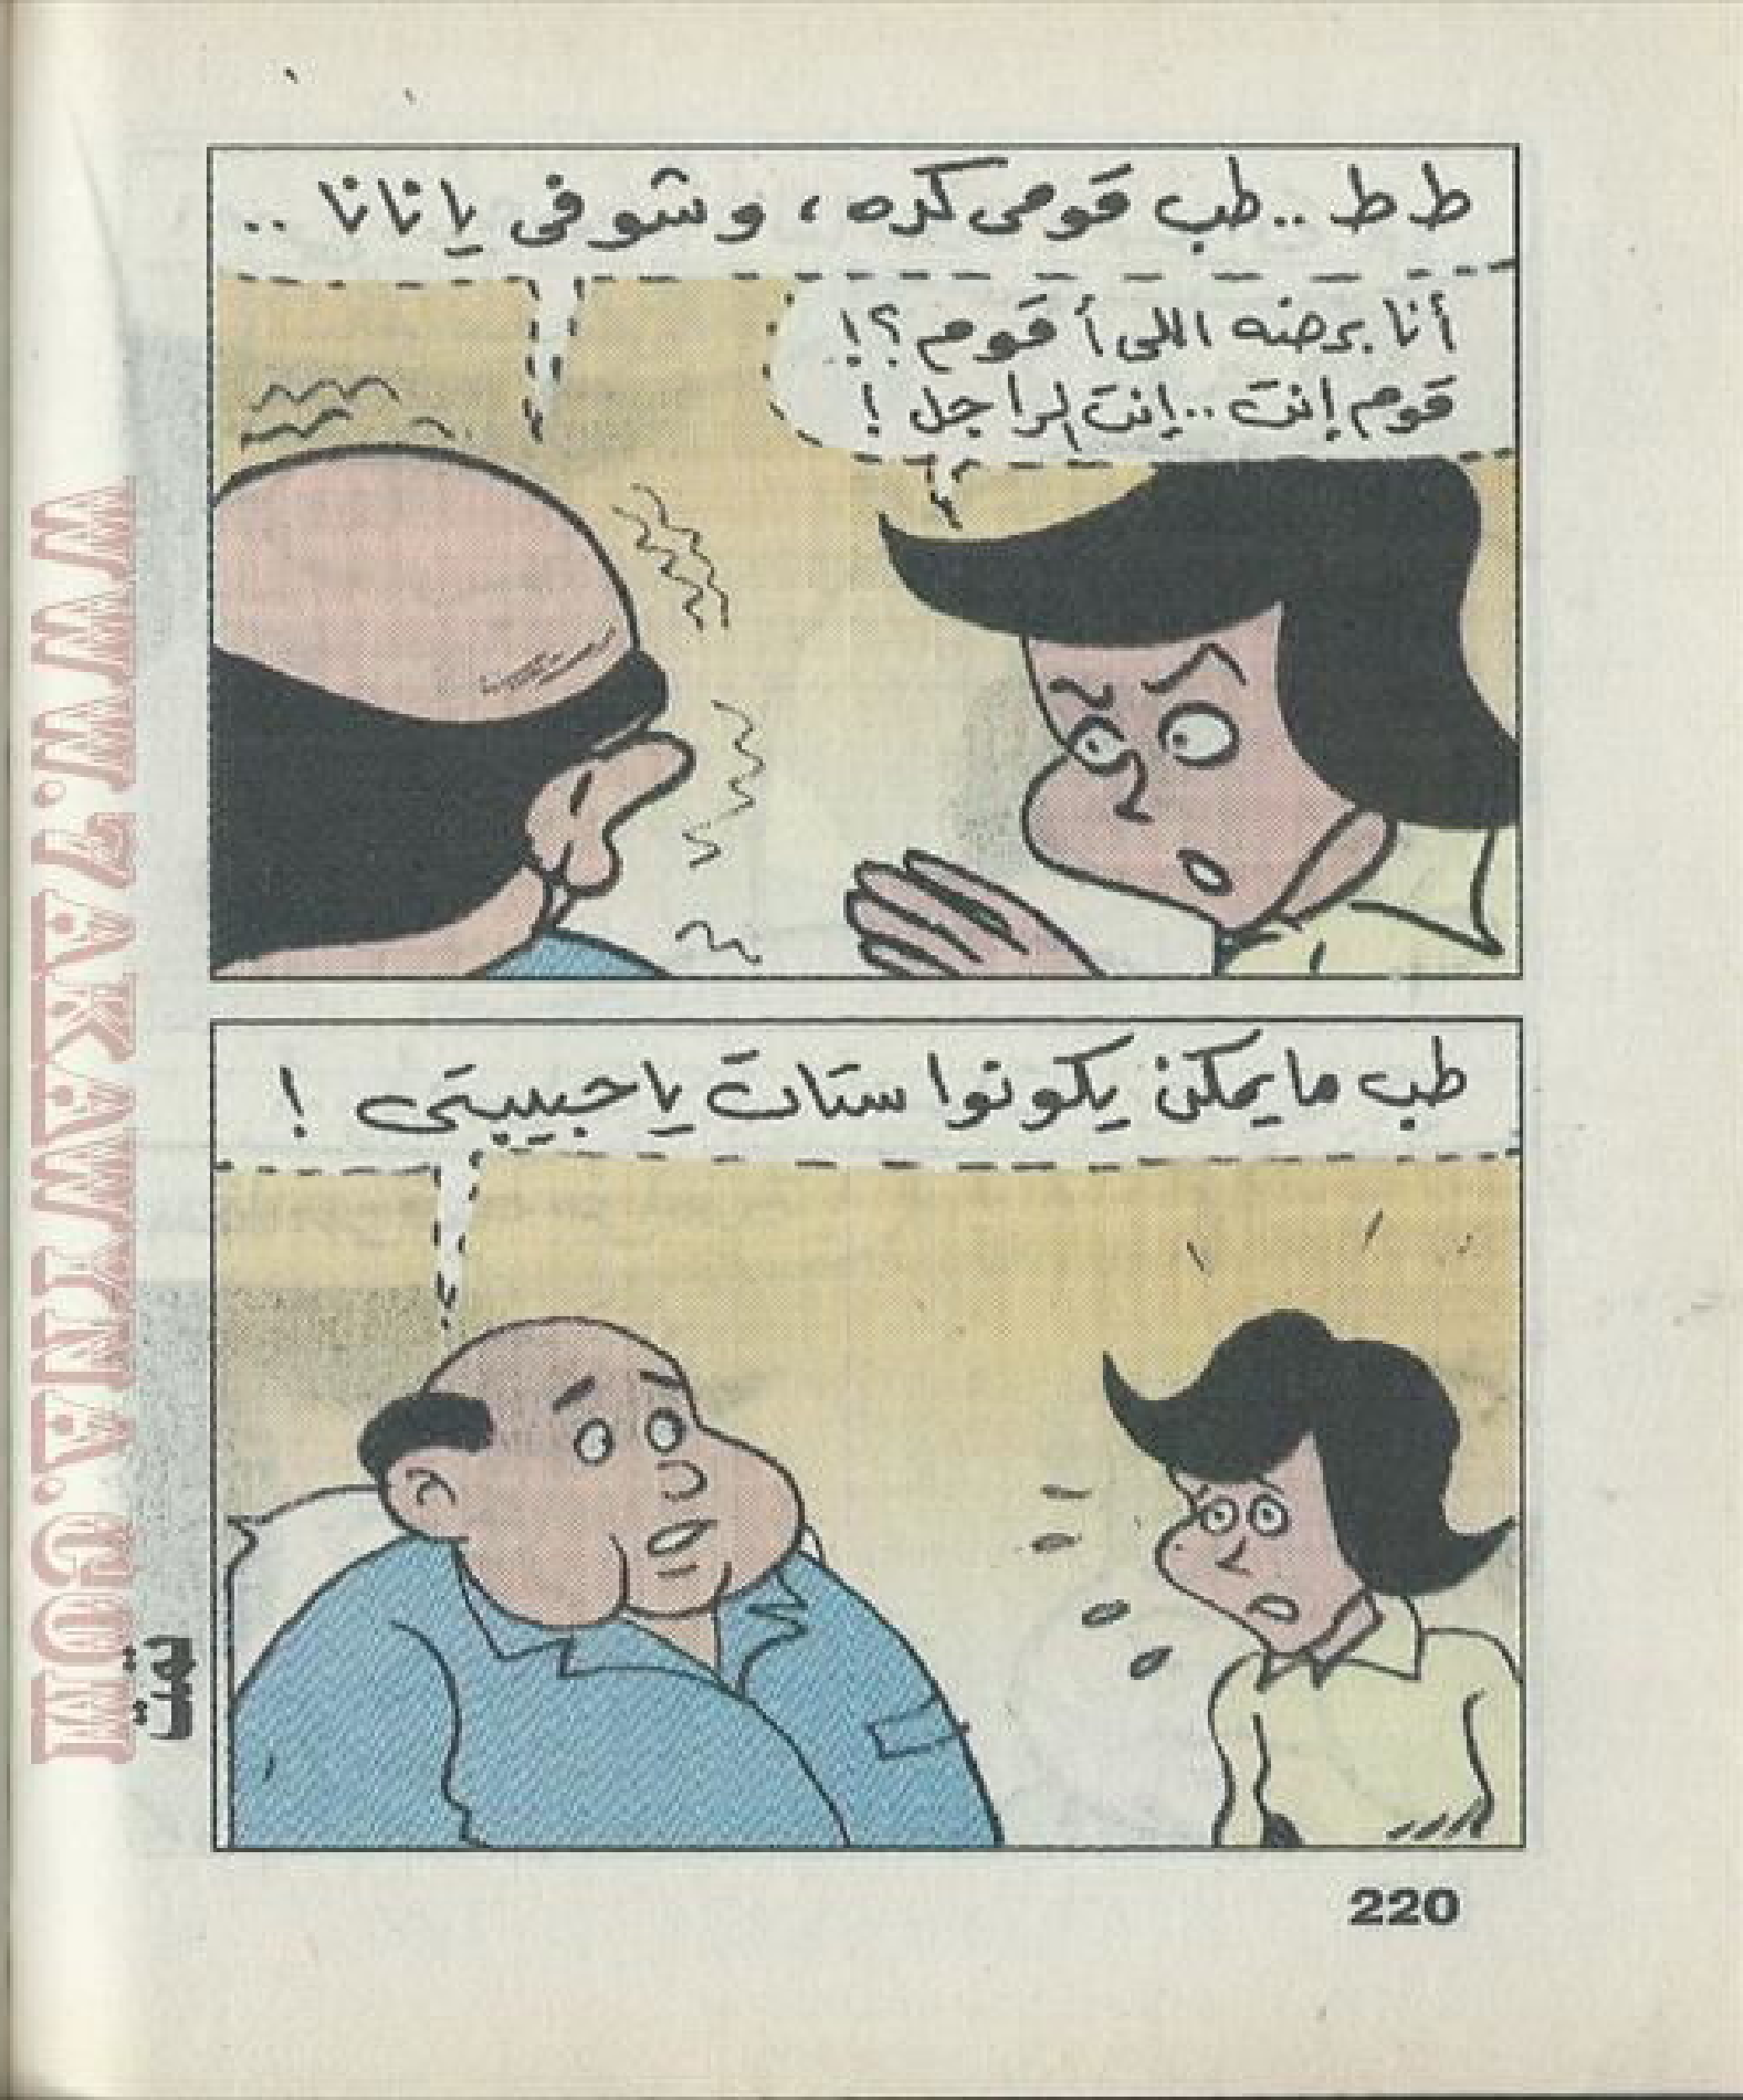 ط ط .. طب قومى كده ، وشوفى يا نانا ..
أنا برضه اللى أقوم ؟!
قوم إنت .. إنت الراجل !
طب ما يمكن يكونوا ستات يا حبيبتى !
تمت
220
WWW.7AKAWITNA.COM